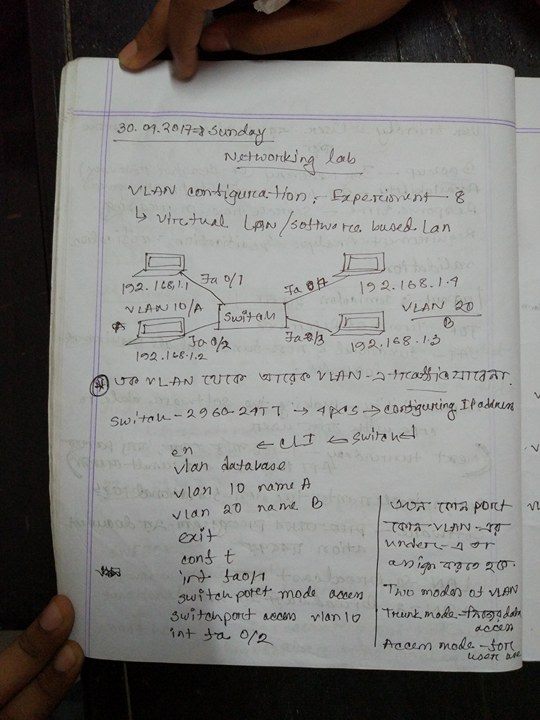 30.07.2017 Sunday
Networking lab
VLAN configuration. Experiment 8
↳ Virtual LAN/software based Lan
192.168.1.1 Fa 0/1 Fa 192.168.1.4
VLAN 10/A Switch VLAN 20
A B
192.168.1.2 Fa 0/2 Fa 0/3 192.168.1.3
এক VLAN থেকে আরেক VLAN-এ traffic যাবেনা.
Switch - 2960-24TT → 4 pcs → configuring IP address
← CLI ← switch
en
vlan database
vlan 10 name A
vlan 20 name B
exit
conf t
int fa0/1
switchport mode access
switchport access vlan 10
int fa 0/2
কোন port
কোন VLAN-এর
under-এ তা
assign করতে হবে.
Two modes of VLAN
Trunk mode - data
access
Access mode - for
user use